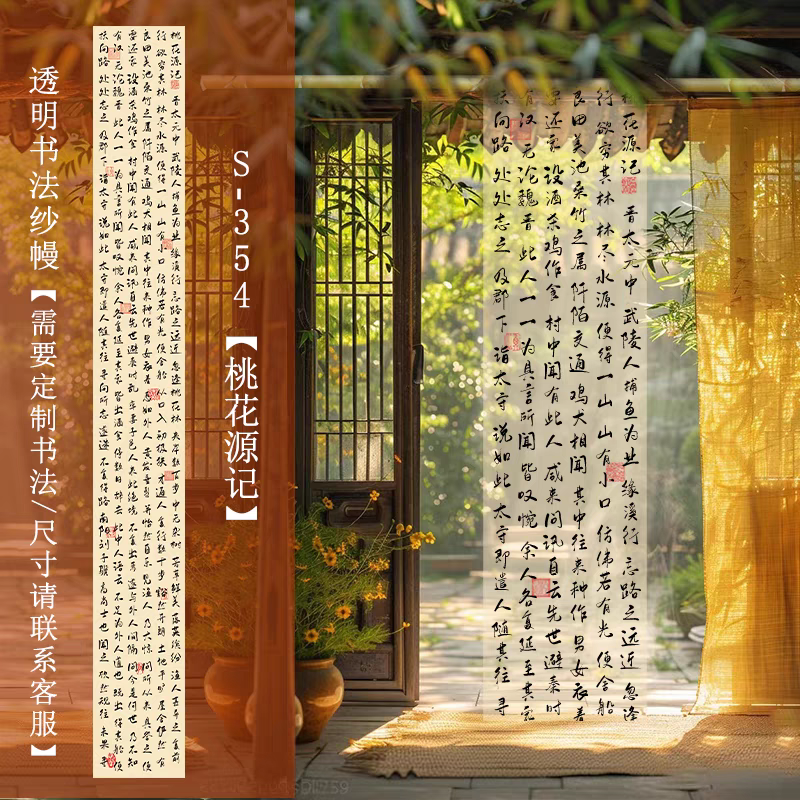 透明书法纱幔【需要定制书法/尺寸请联系客服】
S-354【桃花源记】
桃花源记 晋太元中 武陵人捕鱼为业 缘溪行 忘路之远近 忽逢桃花林 夹岸数百步 中无杂树 芳草鲜美 落英缤纷 渔人甚异之 复前
行 欲穷其林 林尽水源 便得一山 山有小口 仿佛若有光 便舍船 从口入 初极狭 才通人 复行数十步 豁然开朗 土地平旷 屋舍俨然 有
良田美池桑竹之属 阡陌交通 鸡犬相闻 其中往来种作 男女衣着 悉如外人 黄发垂髫 并怡然自乐 见渔人 乃大惊 问所从来 具答之 便
要还家 设酒杀鸡作食 村中闻有此人 咸来问讯 自云先世避秦时乱 率妻子邑人来此绝境 不复出焉 遂与外人间隔 问今是何世 乃不知
有汉 无论魏晋 此人一一为具言所闻 皆叹惋 余人各复延至其家 皆出酒食 停数日 辞去 此中人语云 不足为外人道也 既出 得其船 便
扶向路 处处志之 及郡下 诣太守 说如此 太守即遣人随其往 寻向所志 遂迷 不复得路 南阳刘子骥 高尚士也 闻之 欣然规往 未果 寻
桃花源记 晋太元中 武陵人捕鱼为业 缘溪行 忘路之远近 忽逢
行 欲穷其林 林尽水源 便得一山 山有小口 仿佛若有光 便舍船
良田美池桑竹之属 阡陌交通 鸡犬相闻 其中往来种作 男女衣着
要还家 设酒杀鸡作食 村中闻有此人 咸来问讯 自云先世避秦时
有汉 无论魏晋 此人一一为具言所闻 皆叹惋 余人各复延至其家
扶向路 处处志之 及郡下 诣太守 说如此 太守即遣人随其往 寻